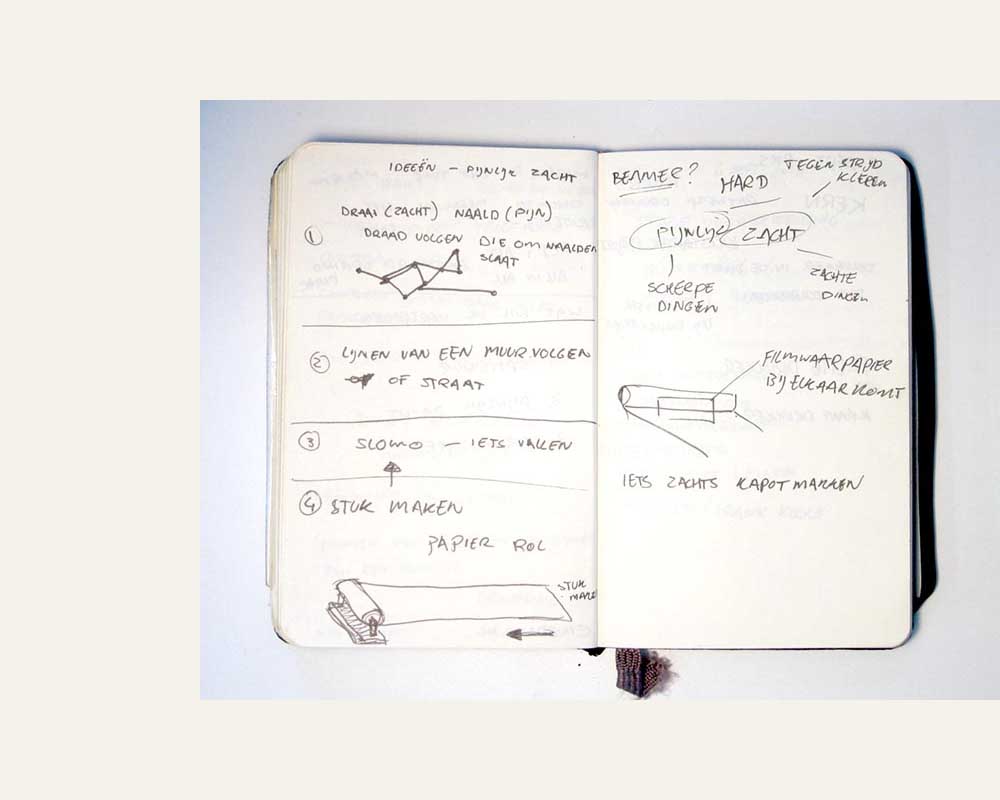 IDEEËN - PIJNLIJK ZACHT
DRAAI (ZACHT) NAALD (PIJN)
① DRAAD VOLGEN DIE OM NAALDEN
SLAAT
② LIJNEN VAN EEN MUUR VOLGEN
OF STRAAT
③ SLOMO - IETS VALLEN
④ STUK MAKEN
PAPIER ROL
STUK
BEAMER?
HARD
TEGENSTRIJD
KLEREN
PIJNLIJK ZACHT
SCHERPE
DINGEN
ZACHTE
DINGEN
FILMWAARPAPIER
BIJ ELKAAR KOMT
IETS ZACHTS KAPOT MAKEN